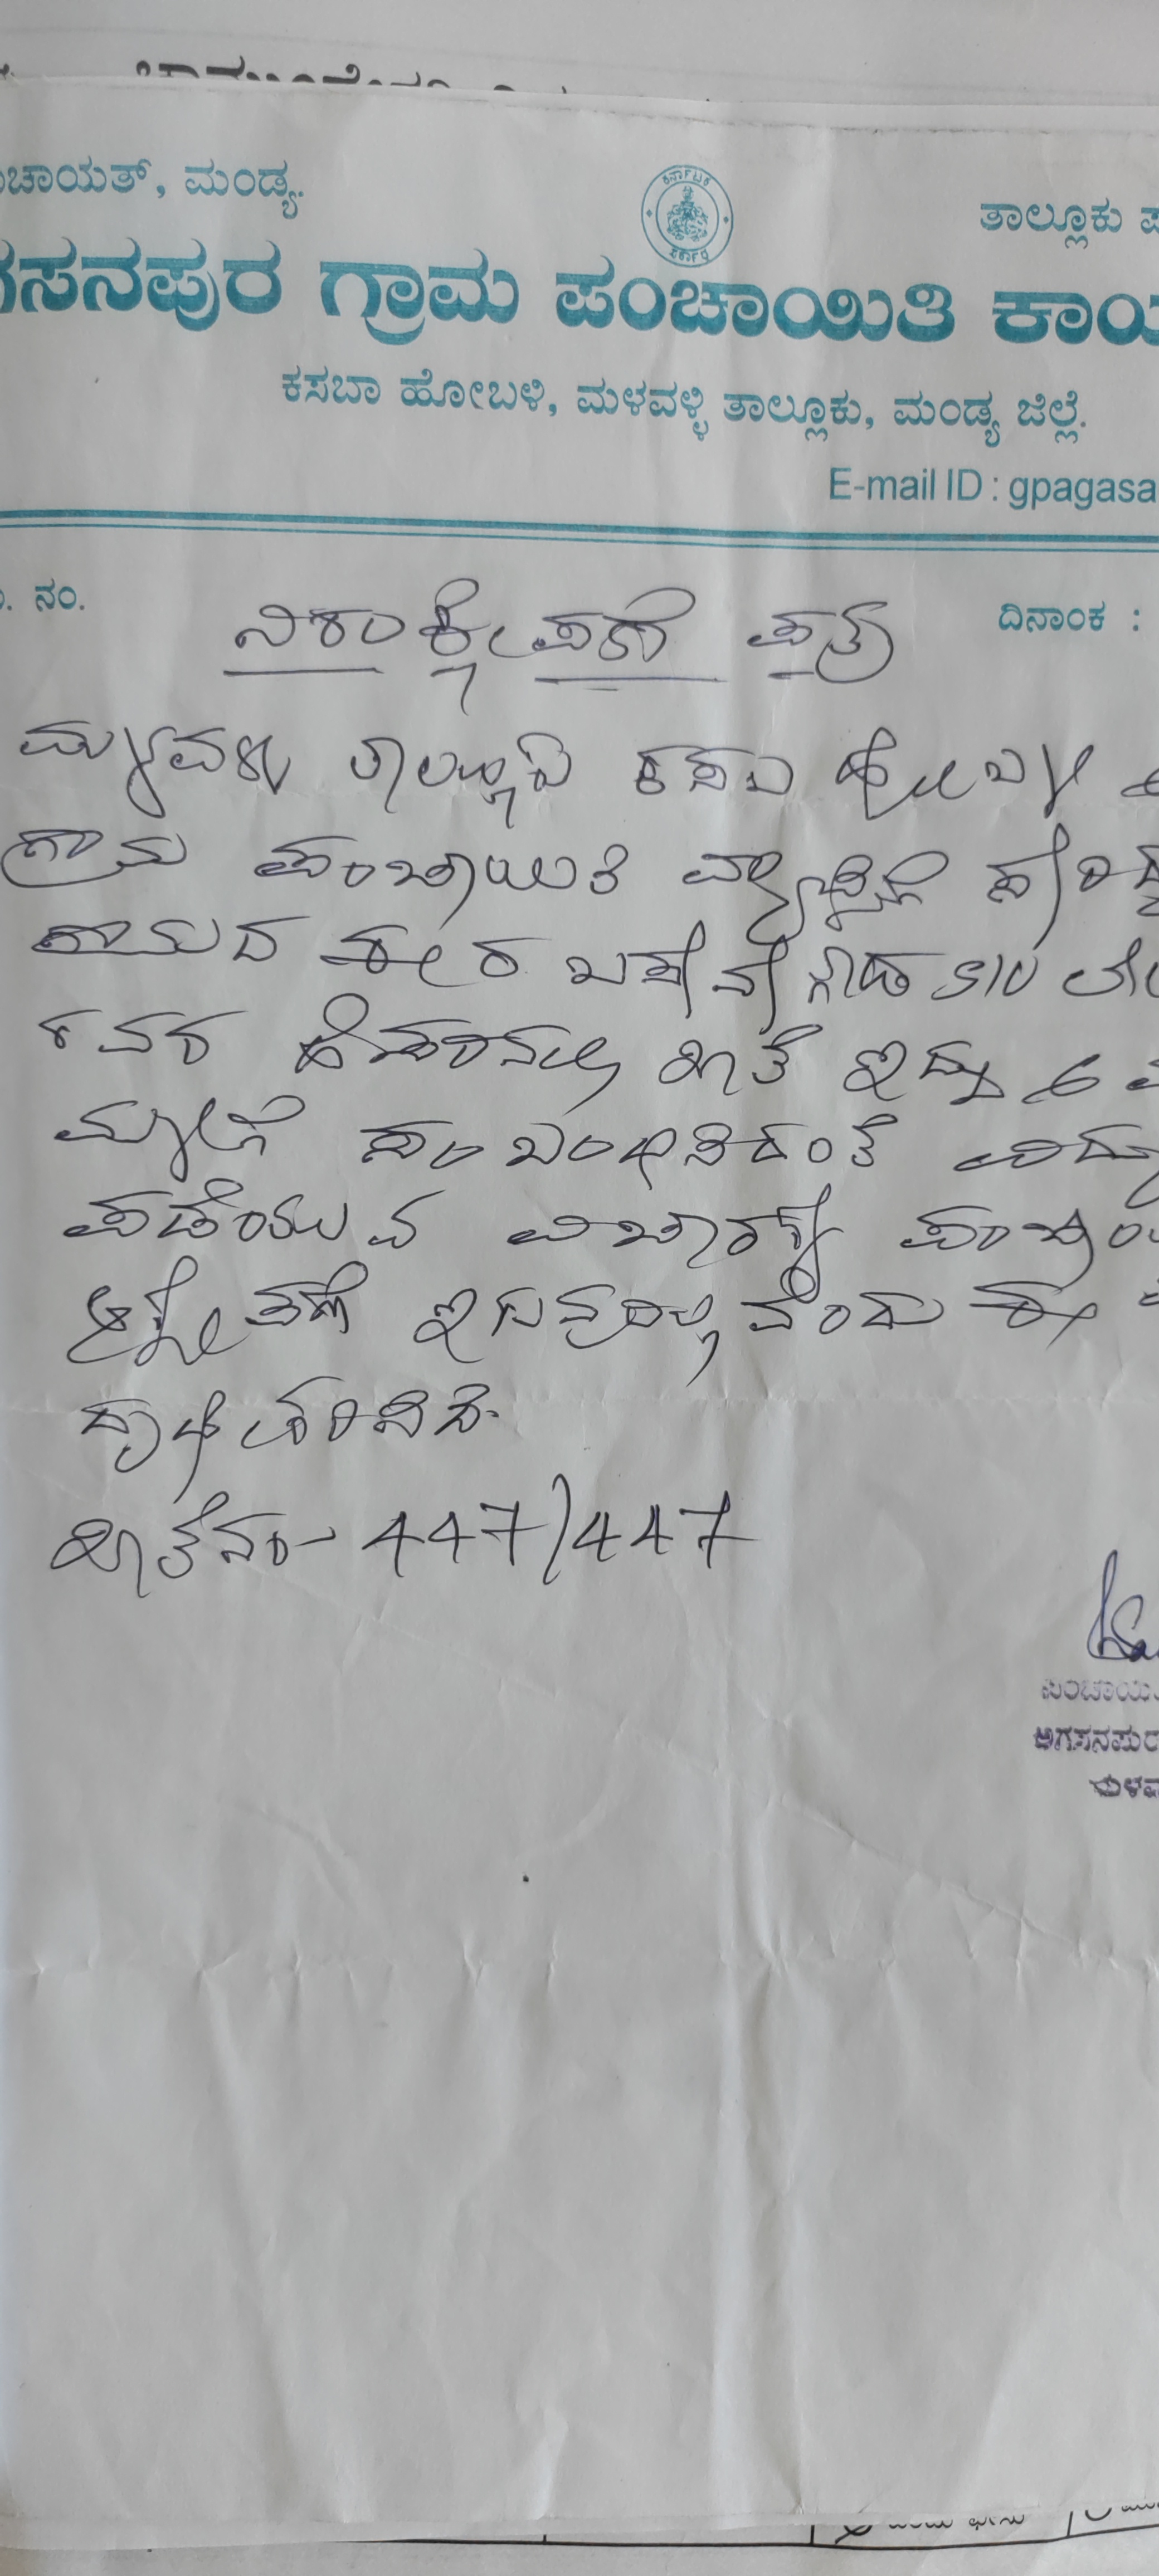 ಚಾಯತ್, ಮಂಡ್ಯ.
ಕರ್ನಾಟಕ
ಸರ್ಕಾರ
ತಾಲ್ಲೂಕು ಪ
ಗಸನಪುರ ಗ್ರಾಮ ಪಂಚಾಯಿತಿ ಕಾರ್ಯ
ಕಸಬಾ ಹೋಬಳಿ, ಮಳವಳ್ಳಿ ತಾಲ್ಲೂಕು, ಮಂಡ್ಯ ಜಿಲ್ಲೆ.
E-mail ID : gpagasa
ನಂ.
ದಿನಾಂಕ :
ನಿರಾಕ್ಷೇಪಣೆ ಪತ್ರ
ಮಳವಳ್ಳಿ ತಾಲ್ಲೂಕು ಕಸಬಾ ಹೋಬಳಿ
ಗ್ರಾಮ ಪಂಚಾಯಿತಿ ವ್ಯಾಪ್ತಿಗೆ ಸೇರಿದ
ಗ್ರಾಮದ
ರವರ ಹೆಸರಿನಲ್ಲಿ ಖಾತೆ ಇದ್ದು
ಸಂಬಂಧಿಸಿದಂತೆ ವಿದ್ಯು
ಪಡೆಯುವ ವಿಚಾರಕ್ಕೆ ಪಂಚಾಯ
ಆಕ್ಷೇಪಣೆ ಇರುವುದಿಲ್ಲವೆಂದು ಈ
ದೃಢೀಕರಿಸಿದೆ.
ಖಾತೆ ನಂ- 447/447
ಪಂಚಾಯಿ
ಅಗಸನಪುರ
ಮಳವ